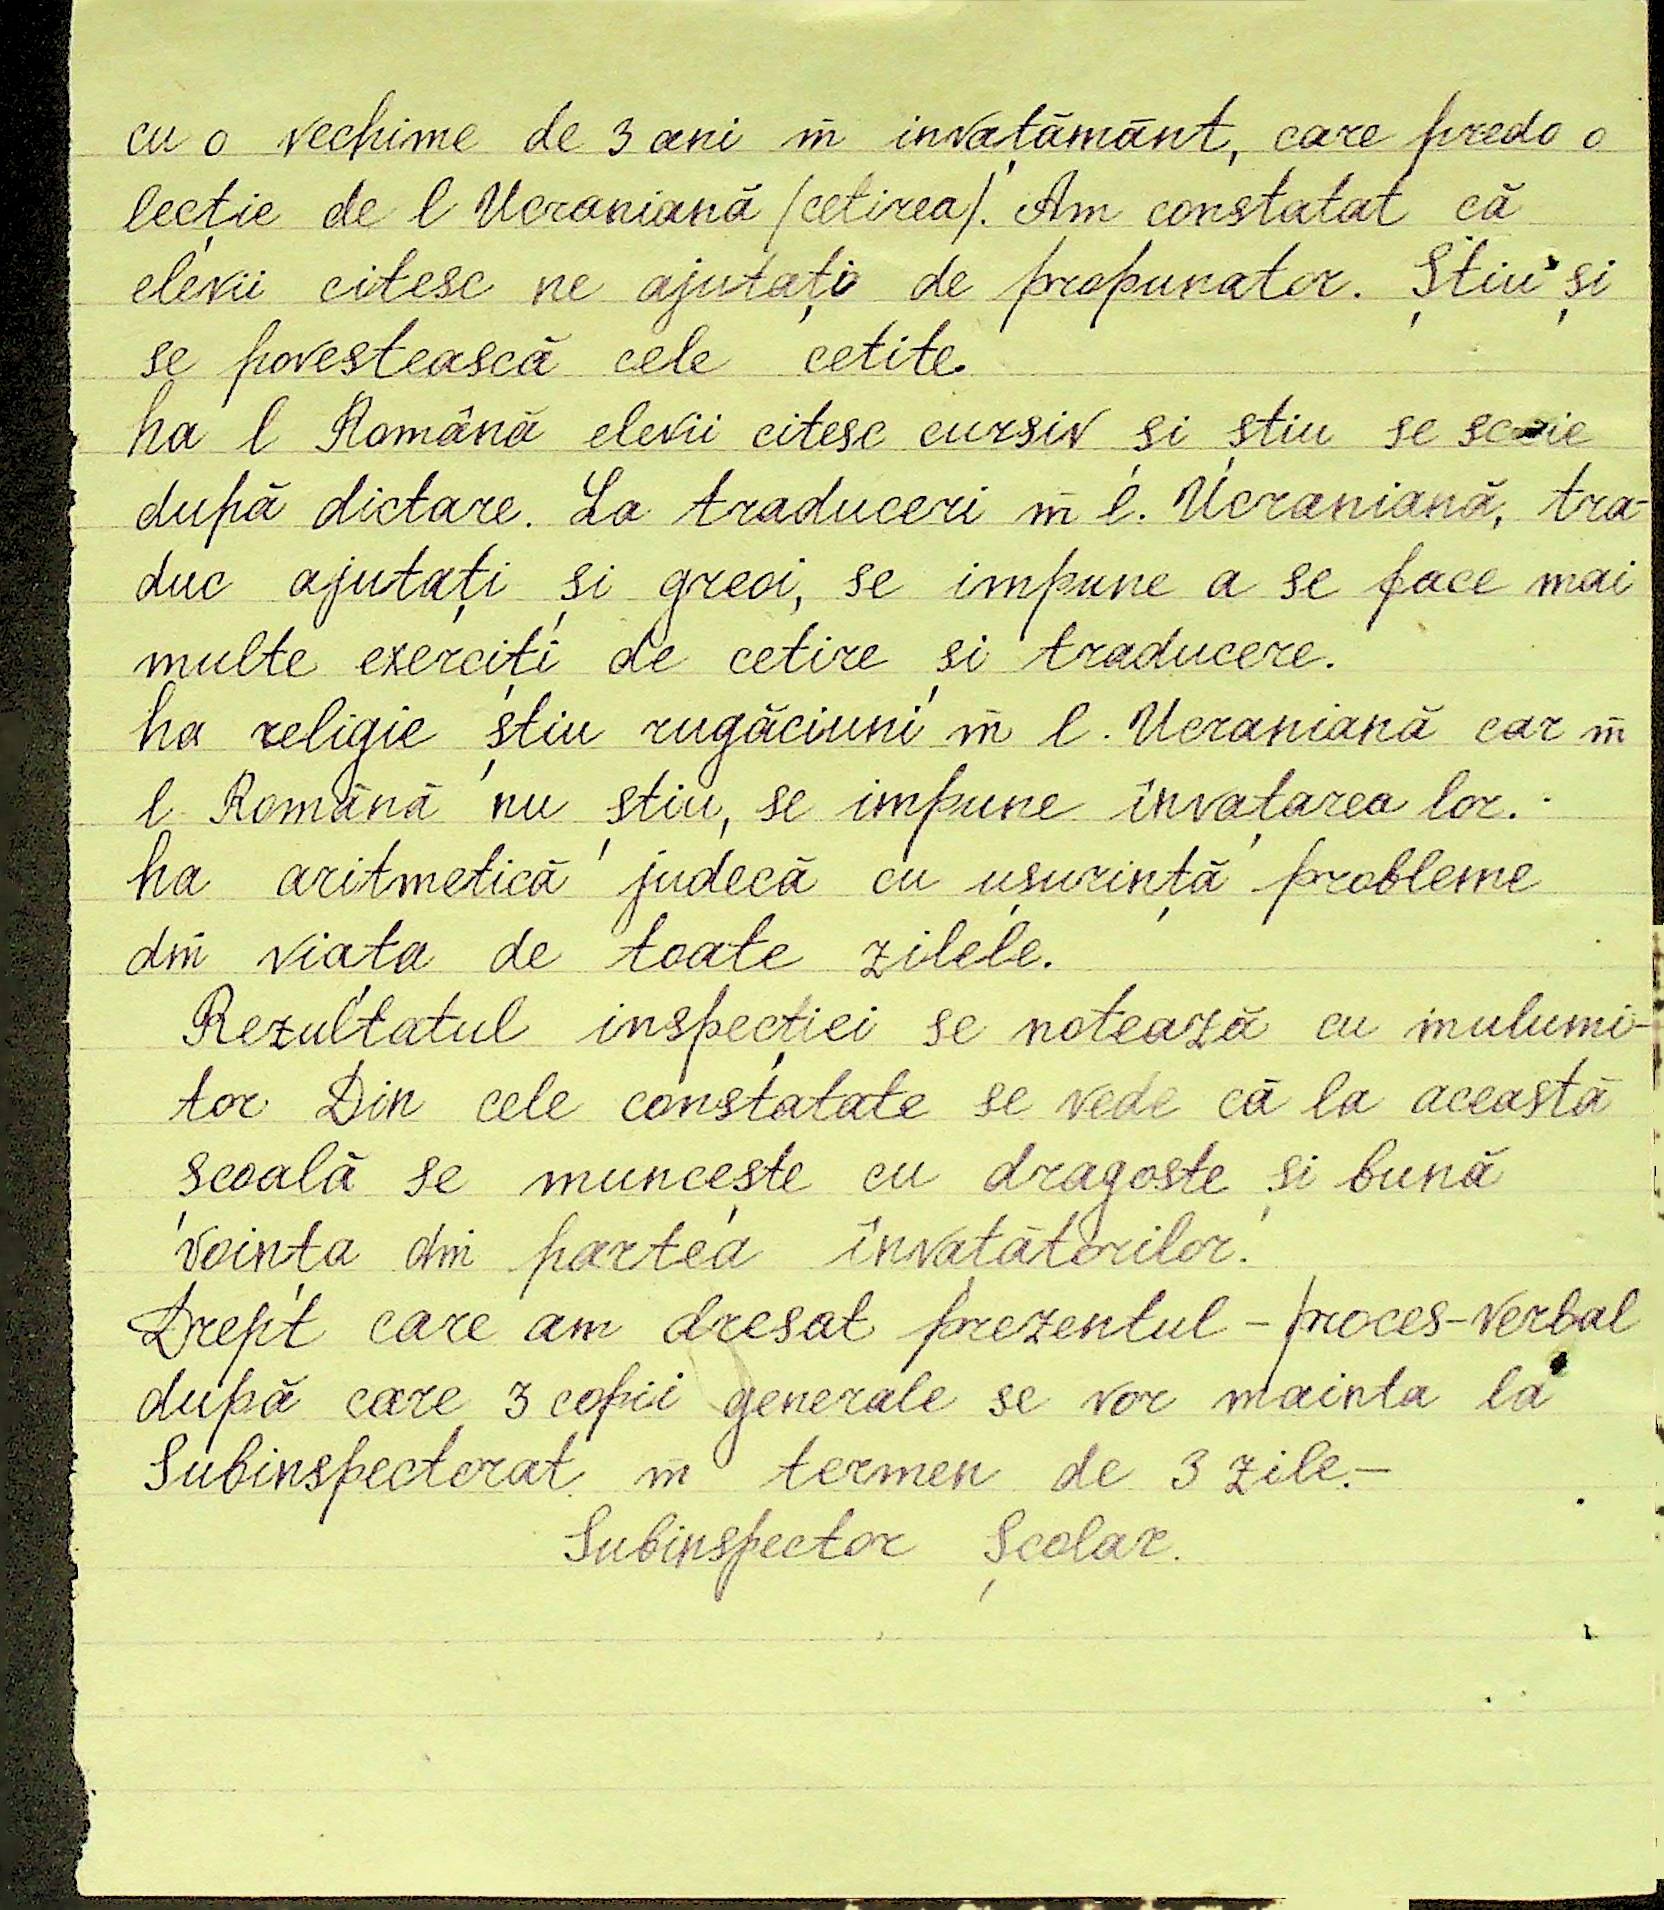 cu o vechime de 3 ani în invațământ, care predo o
lecție de l Ucraniană /cetirea/. Am constatat că
elevii citesc ne ajutați de propunator. Știu și
se povestească cele cetite.
La l Română elevii citesc cursiv și știu se scrie
după dictare. La traduceri în l. Ucraniană, tra-
duc ajutați și greoi, se impune a se face mai
multe exerciți de cetire și traducere.
La religie știu rugăciuni în l. Ucraniană car în
l Română nu știu, se impune învațarea lor.
La aritmetică judecă cu ușurință probleme
din viata de toate zilele.
Rezultatul inspecției se notează cu mulumi-
tor Din cele constatate se vede că la această
școală se muncește cu dragoste și bună
vointa din partea învatătorilor.
Drept care am dresat prezentul - proces-verbal
după care 3 copii generale se vor mainta la
Subinspectorat în termen de 3 zile.-
Subinspector Școlar.